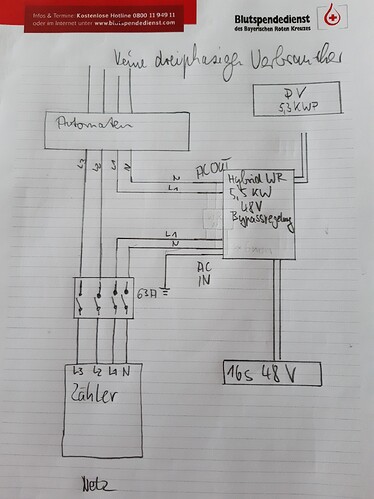 Infos & Termine: Kostenlose Hotline 0800 11 949 11
oder im Internet unter www.blutspendedienst.com
Blutspendedienst
des Bayerischen Roten Kreuzes
Keine dreiphasigen Verbraucher
PV
5,3 KWP
Automaten
L3
L2
L1
N
AC OUT
N
L1
Hybrid WR
5,5 KW
48V
Bypassregelung
L1
N
AC
IN
63A
L3 L2 L1 N
Zähler
16s 48 V
Netz